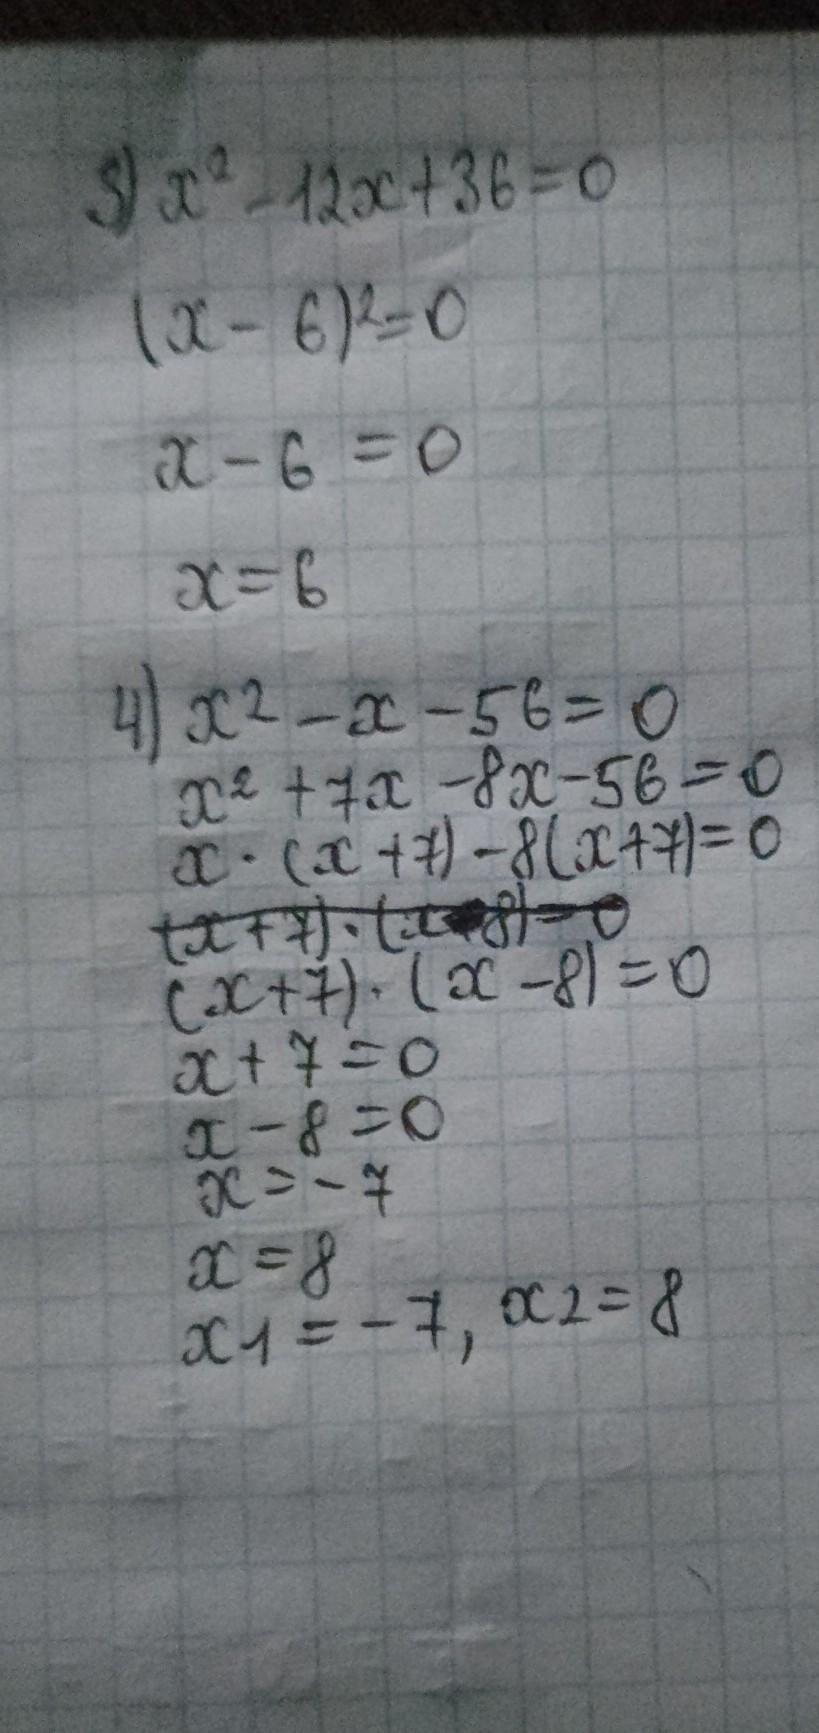 3) x² - 12x + 36 = 0
(x - 6)² = 0
x - 6 = 0
x = 6
4) x² - x - 56 = 0
x² + 7x - 8x - 56 = 0
x · (x + 7) - 8(x + 7) = 0
(x + 7) · (x - 8) = 0
(x + 7) · (x - 8) = 0
x + 7 = 0
x - 8 = 0
x = - 7
x = 8
x1 = - 7, x2 = 8